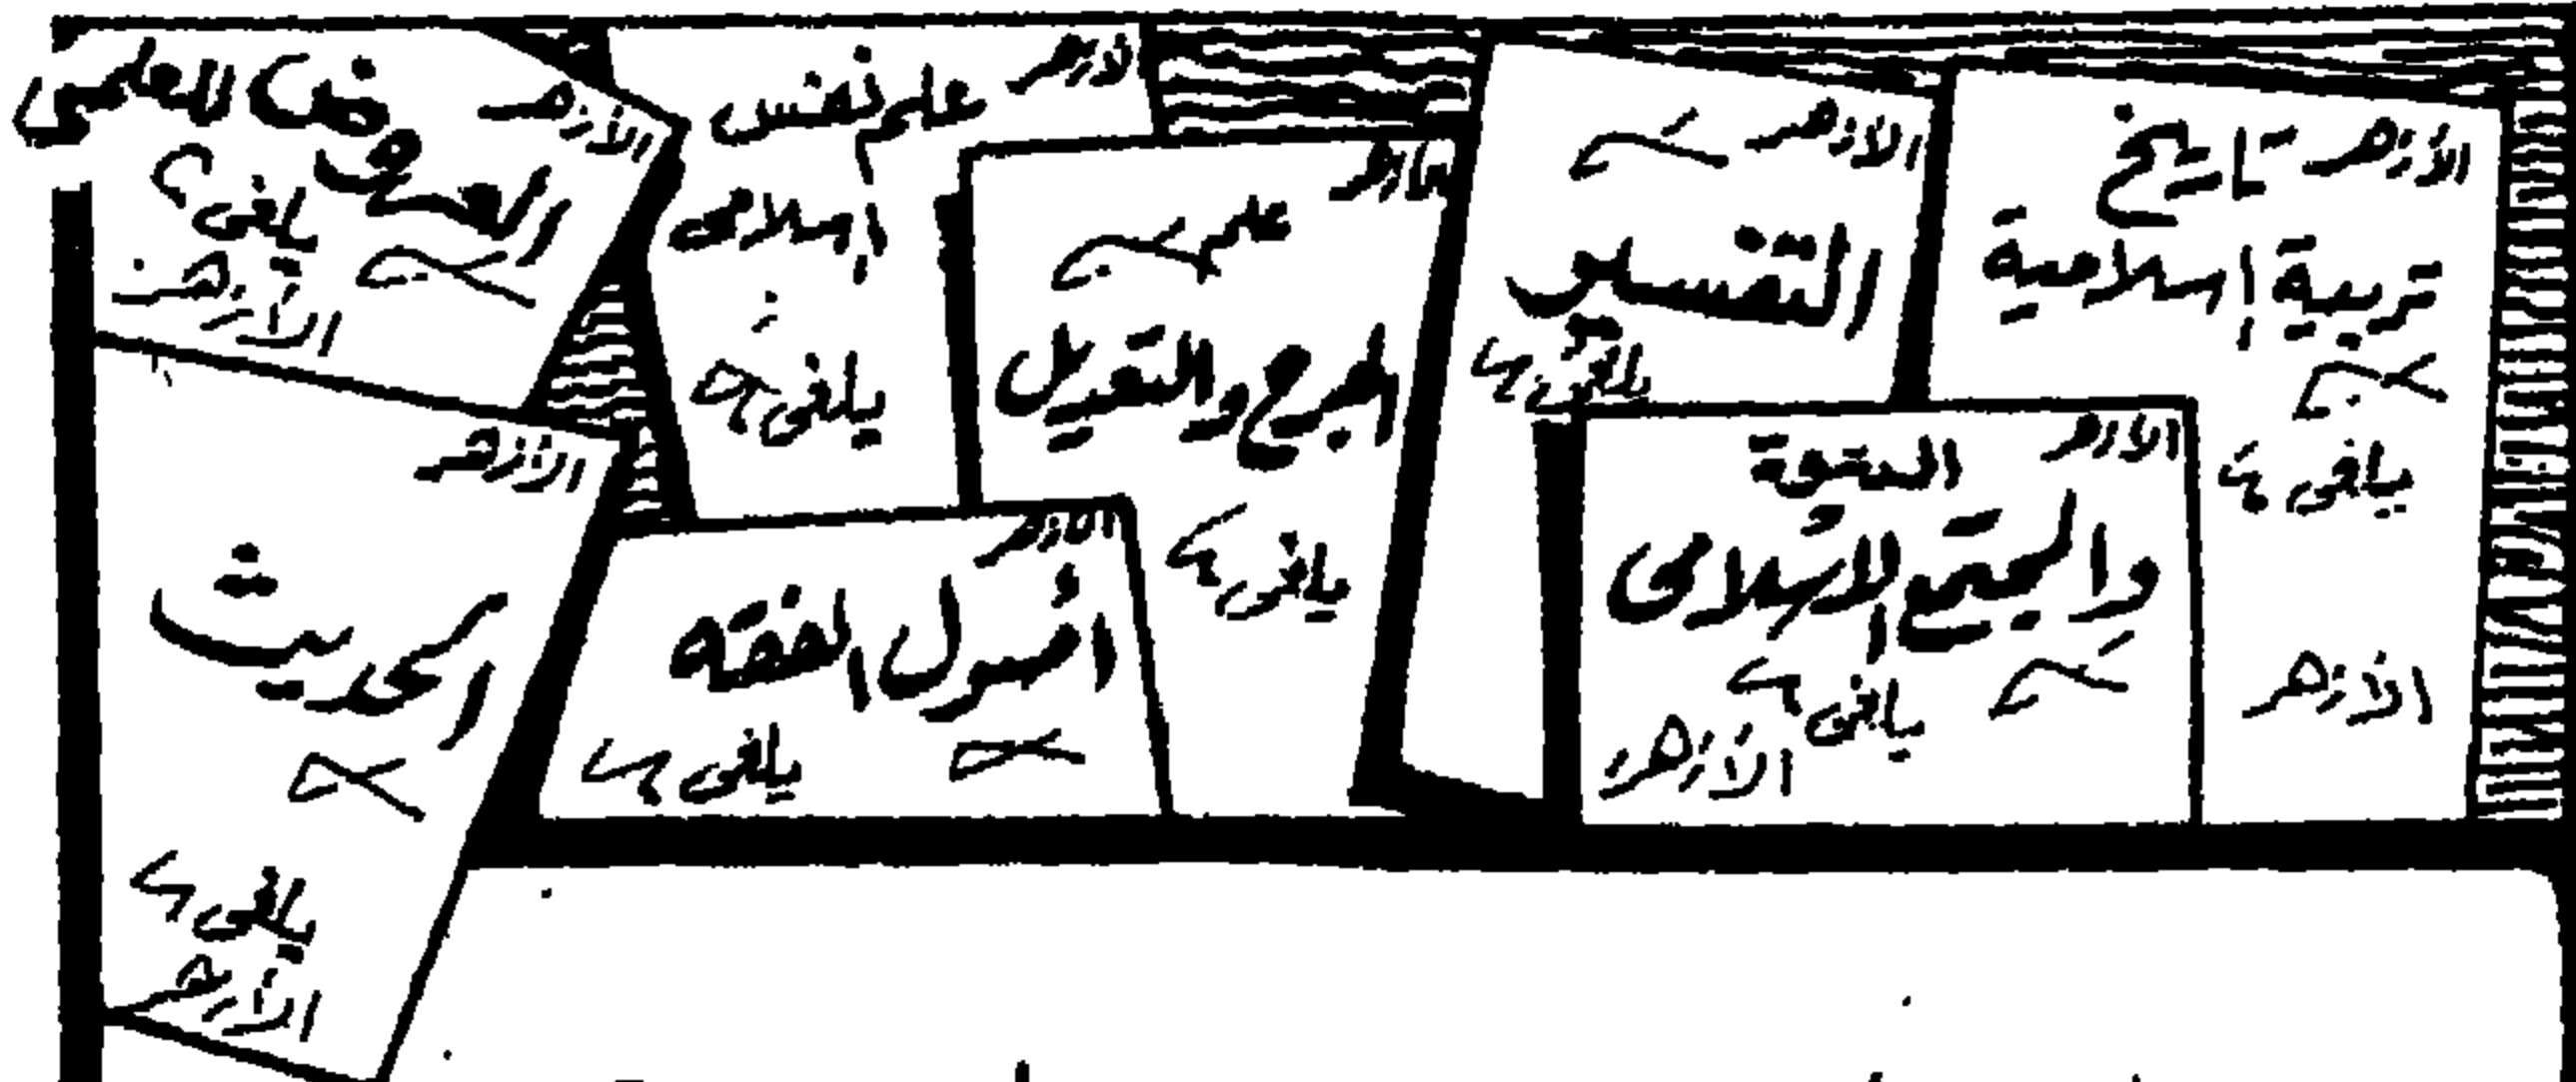 الأزهر تاريخ
تربية إسلامية
يلغى
الأزهر
الأزهر
التفسير
يلغى
الأزهر
العقوبة
والمجتمع الإسلامى
يلغى
الأزهر
الأزهر
علم
الجرح والتعديل
يلغى
الأزهر
علم نفس
إسلامى
يلغى
الأزهر
أصول الفقه
يلغى
الأزهر
العروض العلمى
يلغى
الأزهر
الأزهر
الحديث
يلغى
الأزهر